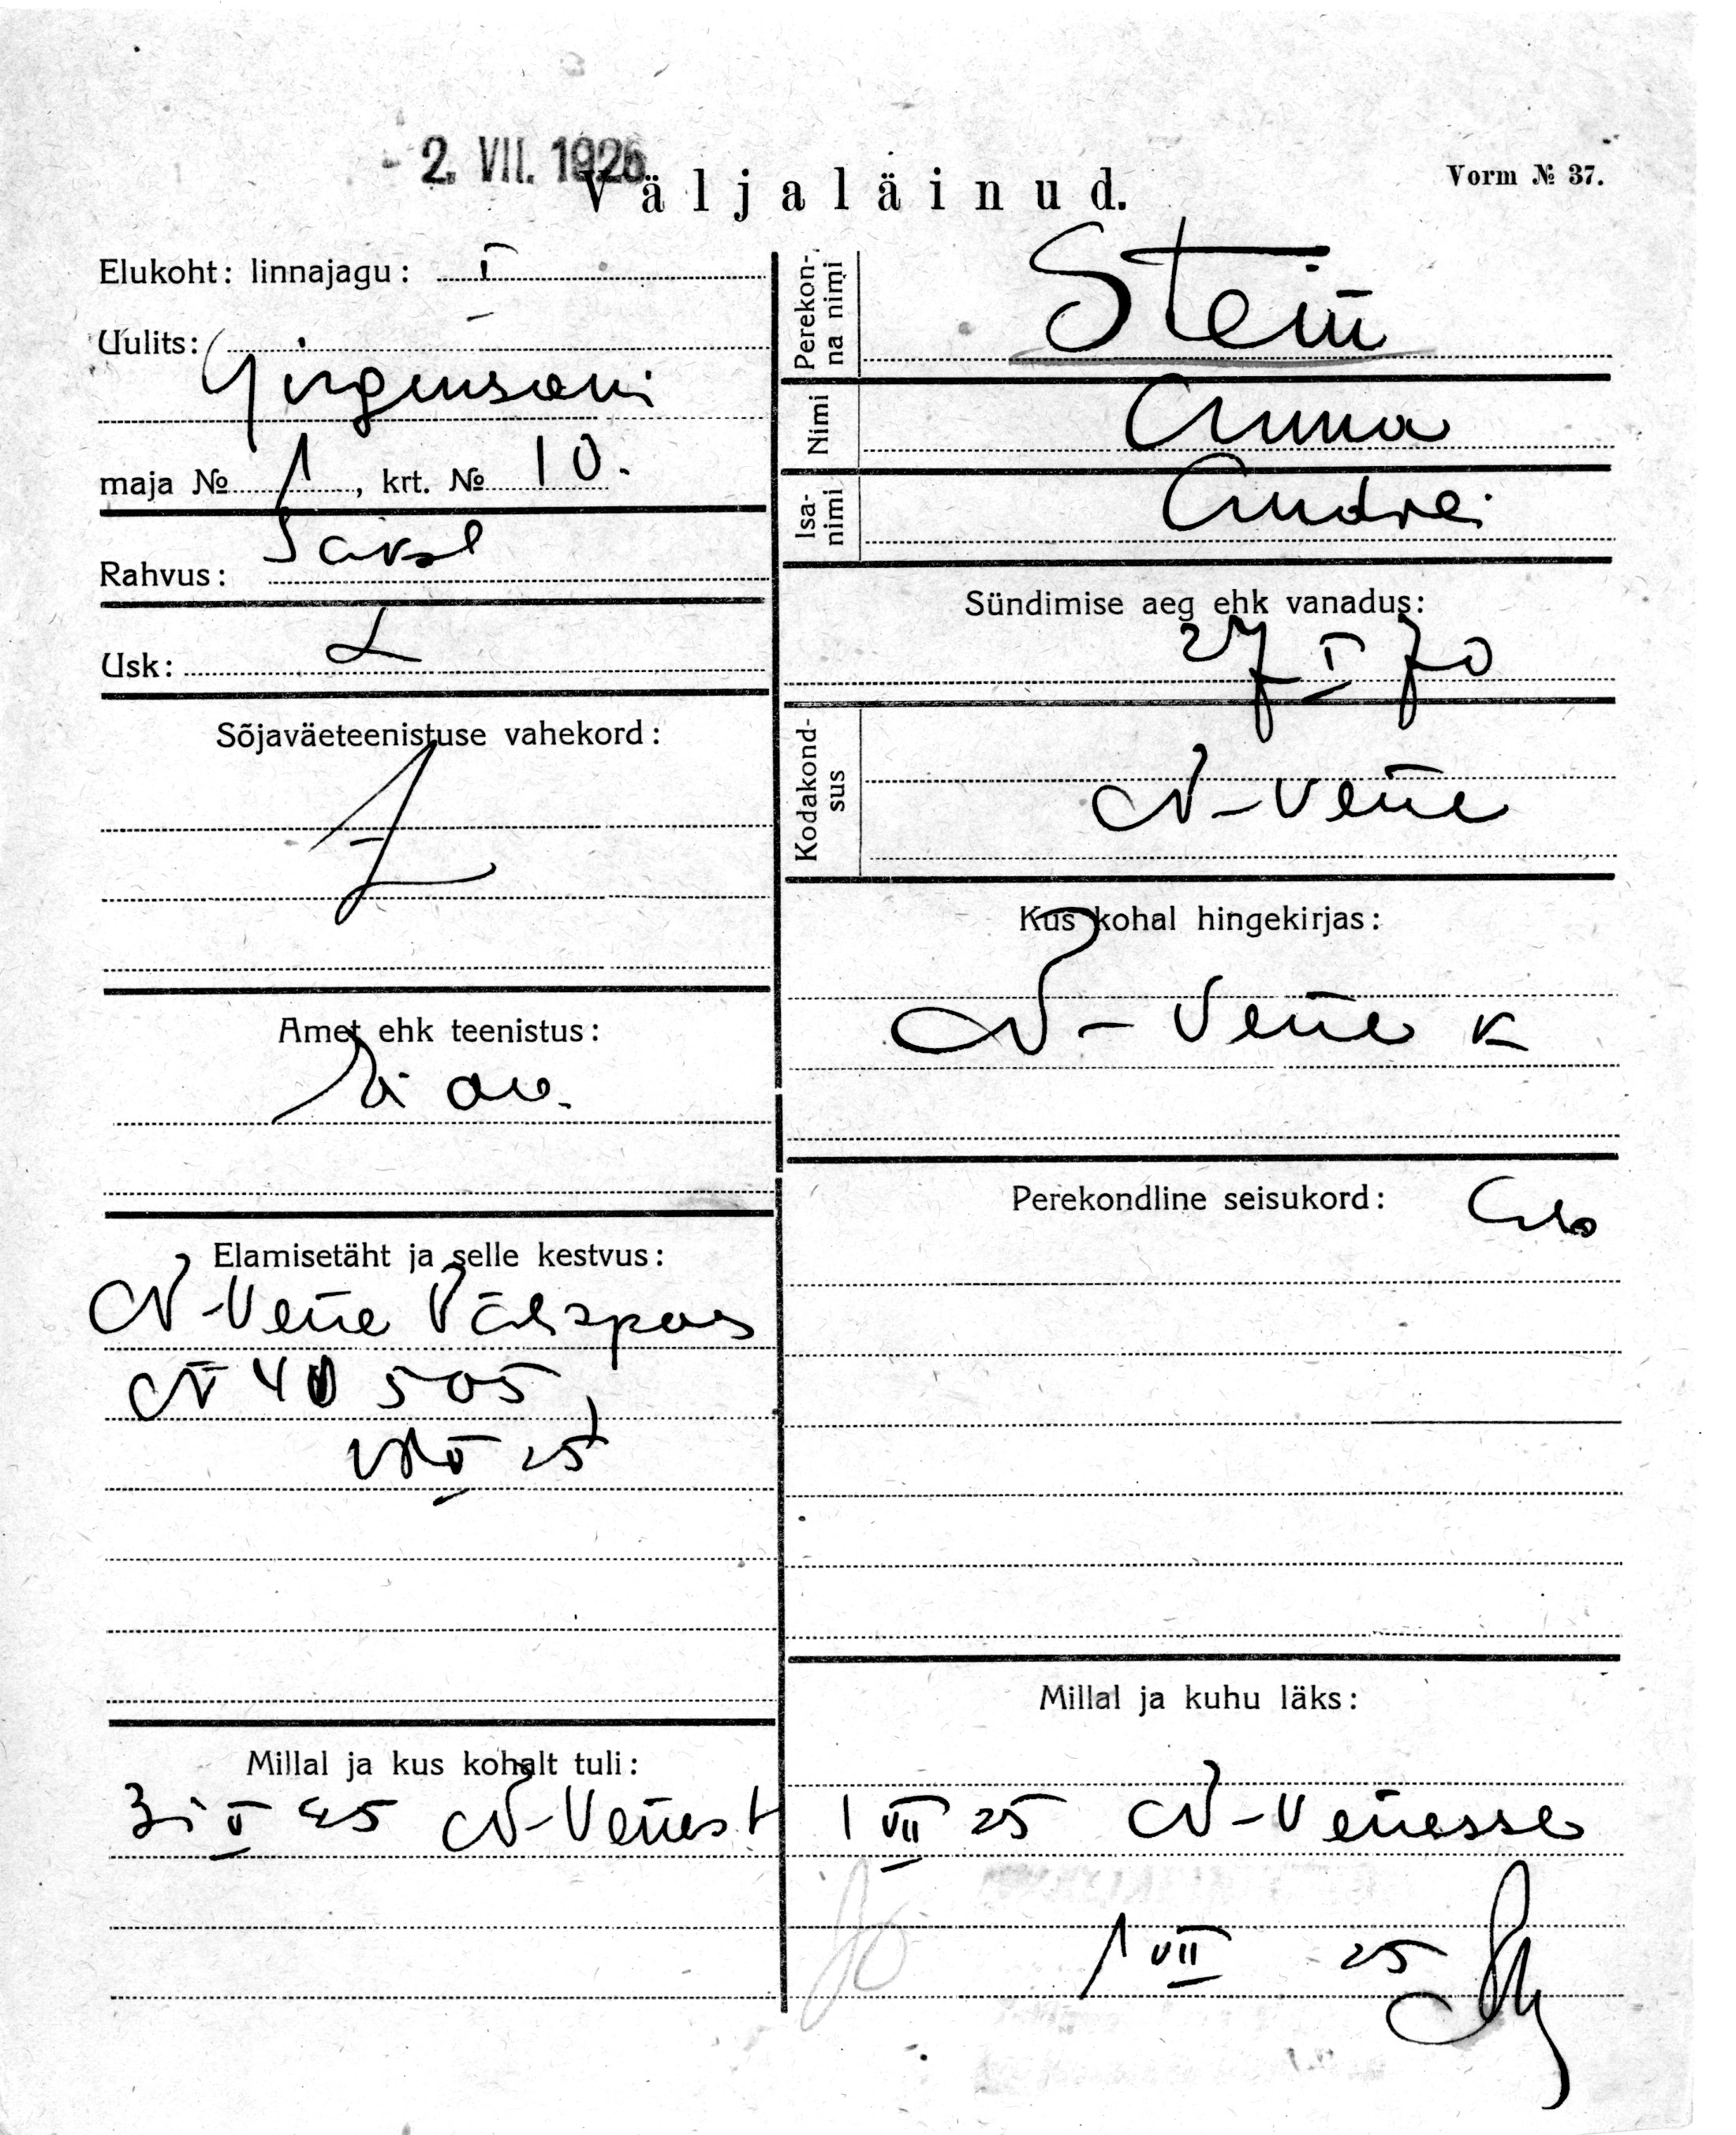 - 2. VII. 1925
Väljaläinud.
Vorm № 37.
Elukoht: linnajagu: I
Uulits:
Girgensoni
maja № 1, krt. № 10.
Rahvus: Saksl
Usk: L
Sõjaväeteenistuse vahekord:
Amet ehk teenistus:
Elamisetäht ja selle kestvus:
N-Vene Välispas
№ 40 505
V 25
Millal ja kus kohalt tuli:
31 V 25 N-Venest
Perekonna nimi Stein
Nimi Anna
Isanimi Andrei
Sündimise aeg ehk vanadus:
27 I 70
Kodakondsus
N-Vene
Kus kohal hingekirjas:
N-Vene k
Perekondline seisukord:
Millal ja kuhu läks:
1 VII 25 N-Venesse
1 VII 25